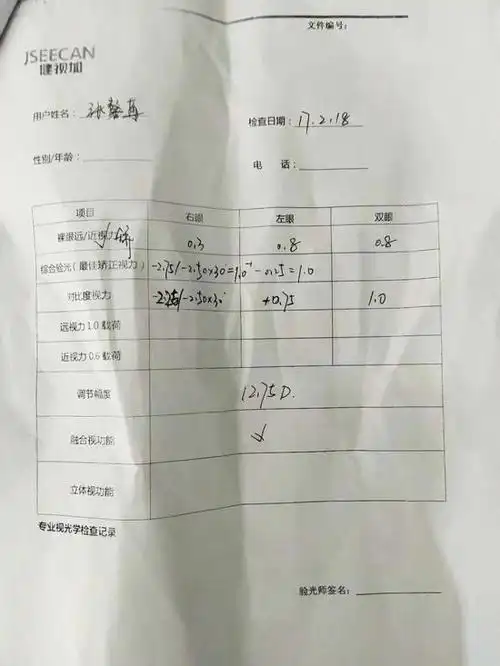 文件编号：
JSEECAN
健视加
用户姓名： 张
检查日期： 17.2.18
性别/年龄：
电 话：
项目 右眼 左眼 双眼
裸眼远/近视力 0.3 0.8 0.8
综合验光（最佳矫正视力） -2.75/-2.50×30=1.0⁻¹ -0.25=1.0
对比度视力 /-2.50×30 +0.75 1.0
远视力 1.0 载荷
近视力 0.6 载荷
调节幅度 12.75D.
融合视功能 √
立体视功能
专业视光学检查记录
验光师签名：